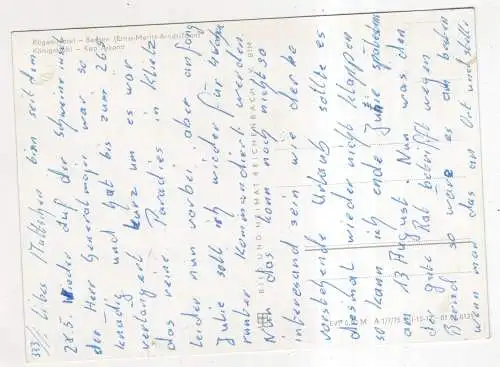 Rügen Insel – Bergen (Ernst-Moritz-Arndt-Turm)
Königsstuhl – Kap Arkona
323/: Liber Mattschen bin seit dem
28.5. wieder auf der Schweineinsel
der Herr Generalmajor war so
knädig und hat bis zum 26.
verlängert kurz um es war
das reine Paradies in Klietz
leider nun vorbei aber anfang
Julie soll ich wieder für 4 Tage
runter kommandiert werden.
Nun das kann noch nicht so
interesand sein wie der
vorstehende Urlaub sollte es
diesmal wieder nicht klappen
so kann ich ende Julie spätestens
am 13 August. Nun was den
der gute Rat betrifft wegen
Bernd so wäre es am besten
wenn man das an Ort und stelle
BILD UND HEIMAT REICHENBACH I. V. BIM
EVP 0,20 M A 1/7/75